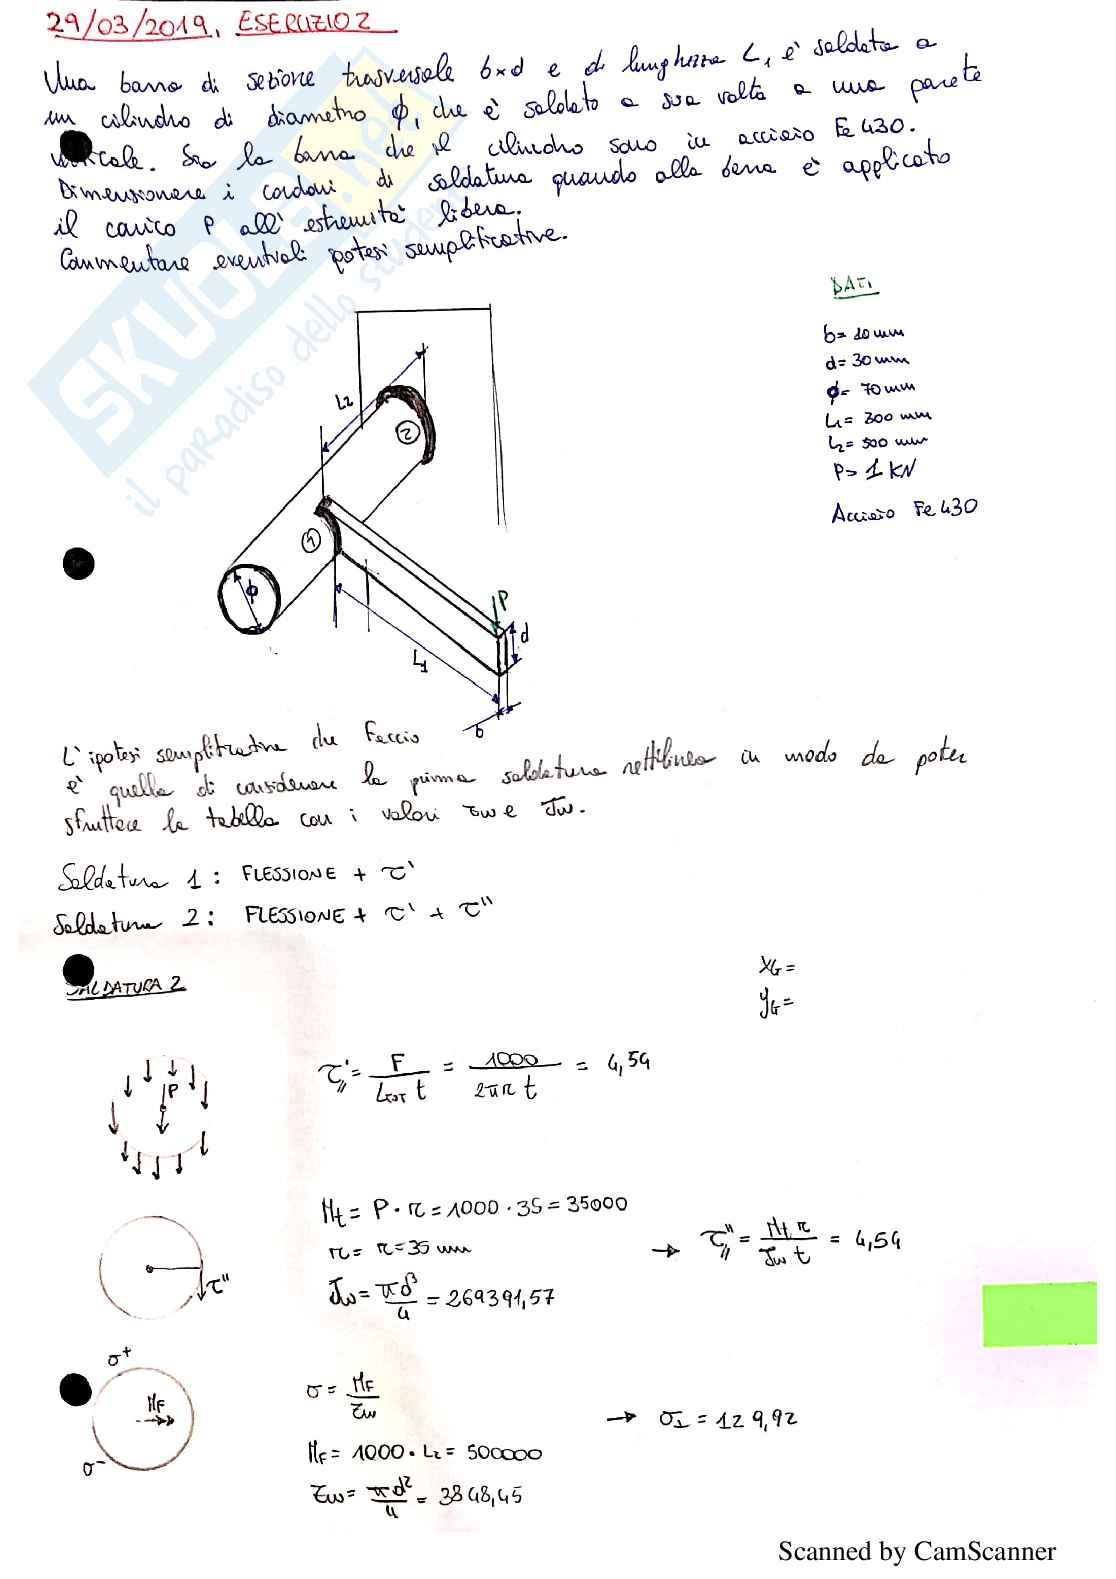 29/03/2019, ESERCIZIO 2
Una barra di sezione trasversale b×d e di lunghezza L1 è saldata a
un cilindro di diametro ϕ, che è saldato a sua volta a una parete
verticale. Sia la barra che il cilindro sono in acciaio Fe 430.
Dimensionare i cordoni di saldatura quando alla barra è applicato
il carico P all'estremità libera.
Commentare eventuali ipotesi semplificative.
DATI
b= 10 mm
d= 30 mm
ϕ= 70 mm
L1= 300 mm
L2= 500 mm
P= 1 KN
Acciaio Fe 430
L2
2
1
ϕ
P
d
L1
b
L'ipotesi semplificativa che faccio
è quella di considerare la prima saldatura rettilinea in modo da poter
sfruttare la tabella con i valori Zw e Jw.
Saldatura 1: FLESSIONE + τ'
Saldatura 2: FLESSIONE + τ' + τ''
SALDATURA 2
XG =
YG =
P
τ'// = F / (Ltot t) = 1000 / (2πr t) = 4,54
Mt = P · r = 1000 · 35 = 35000
r = r = 35 mm
Jw = πd³/4 = 269391,57
→ τ''// = Mt r / (Jw t) = 4,54
τ''
σ+
MF
σ-
σ = MF / Zw
→ σ⊥ = 129,92
MF = 1000 · L2 = 500000
Zw = πd²/4 = 3848,45
Scanned by CamScanner
SKUOLA.net
il paradiso dello studente